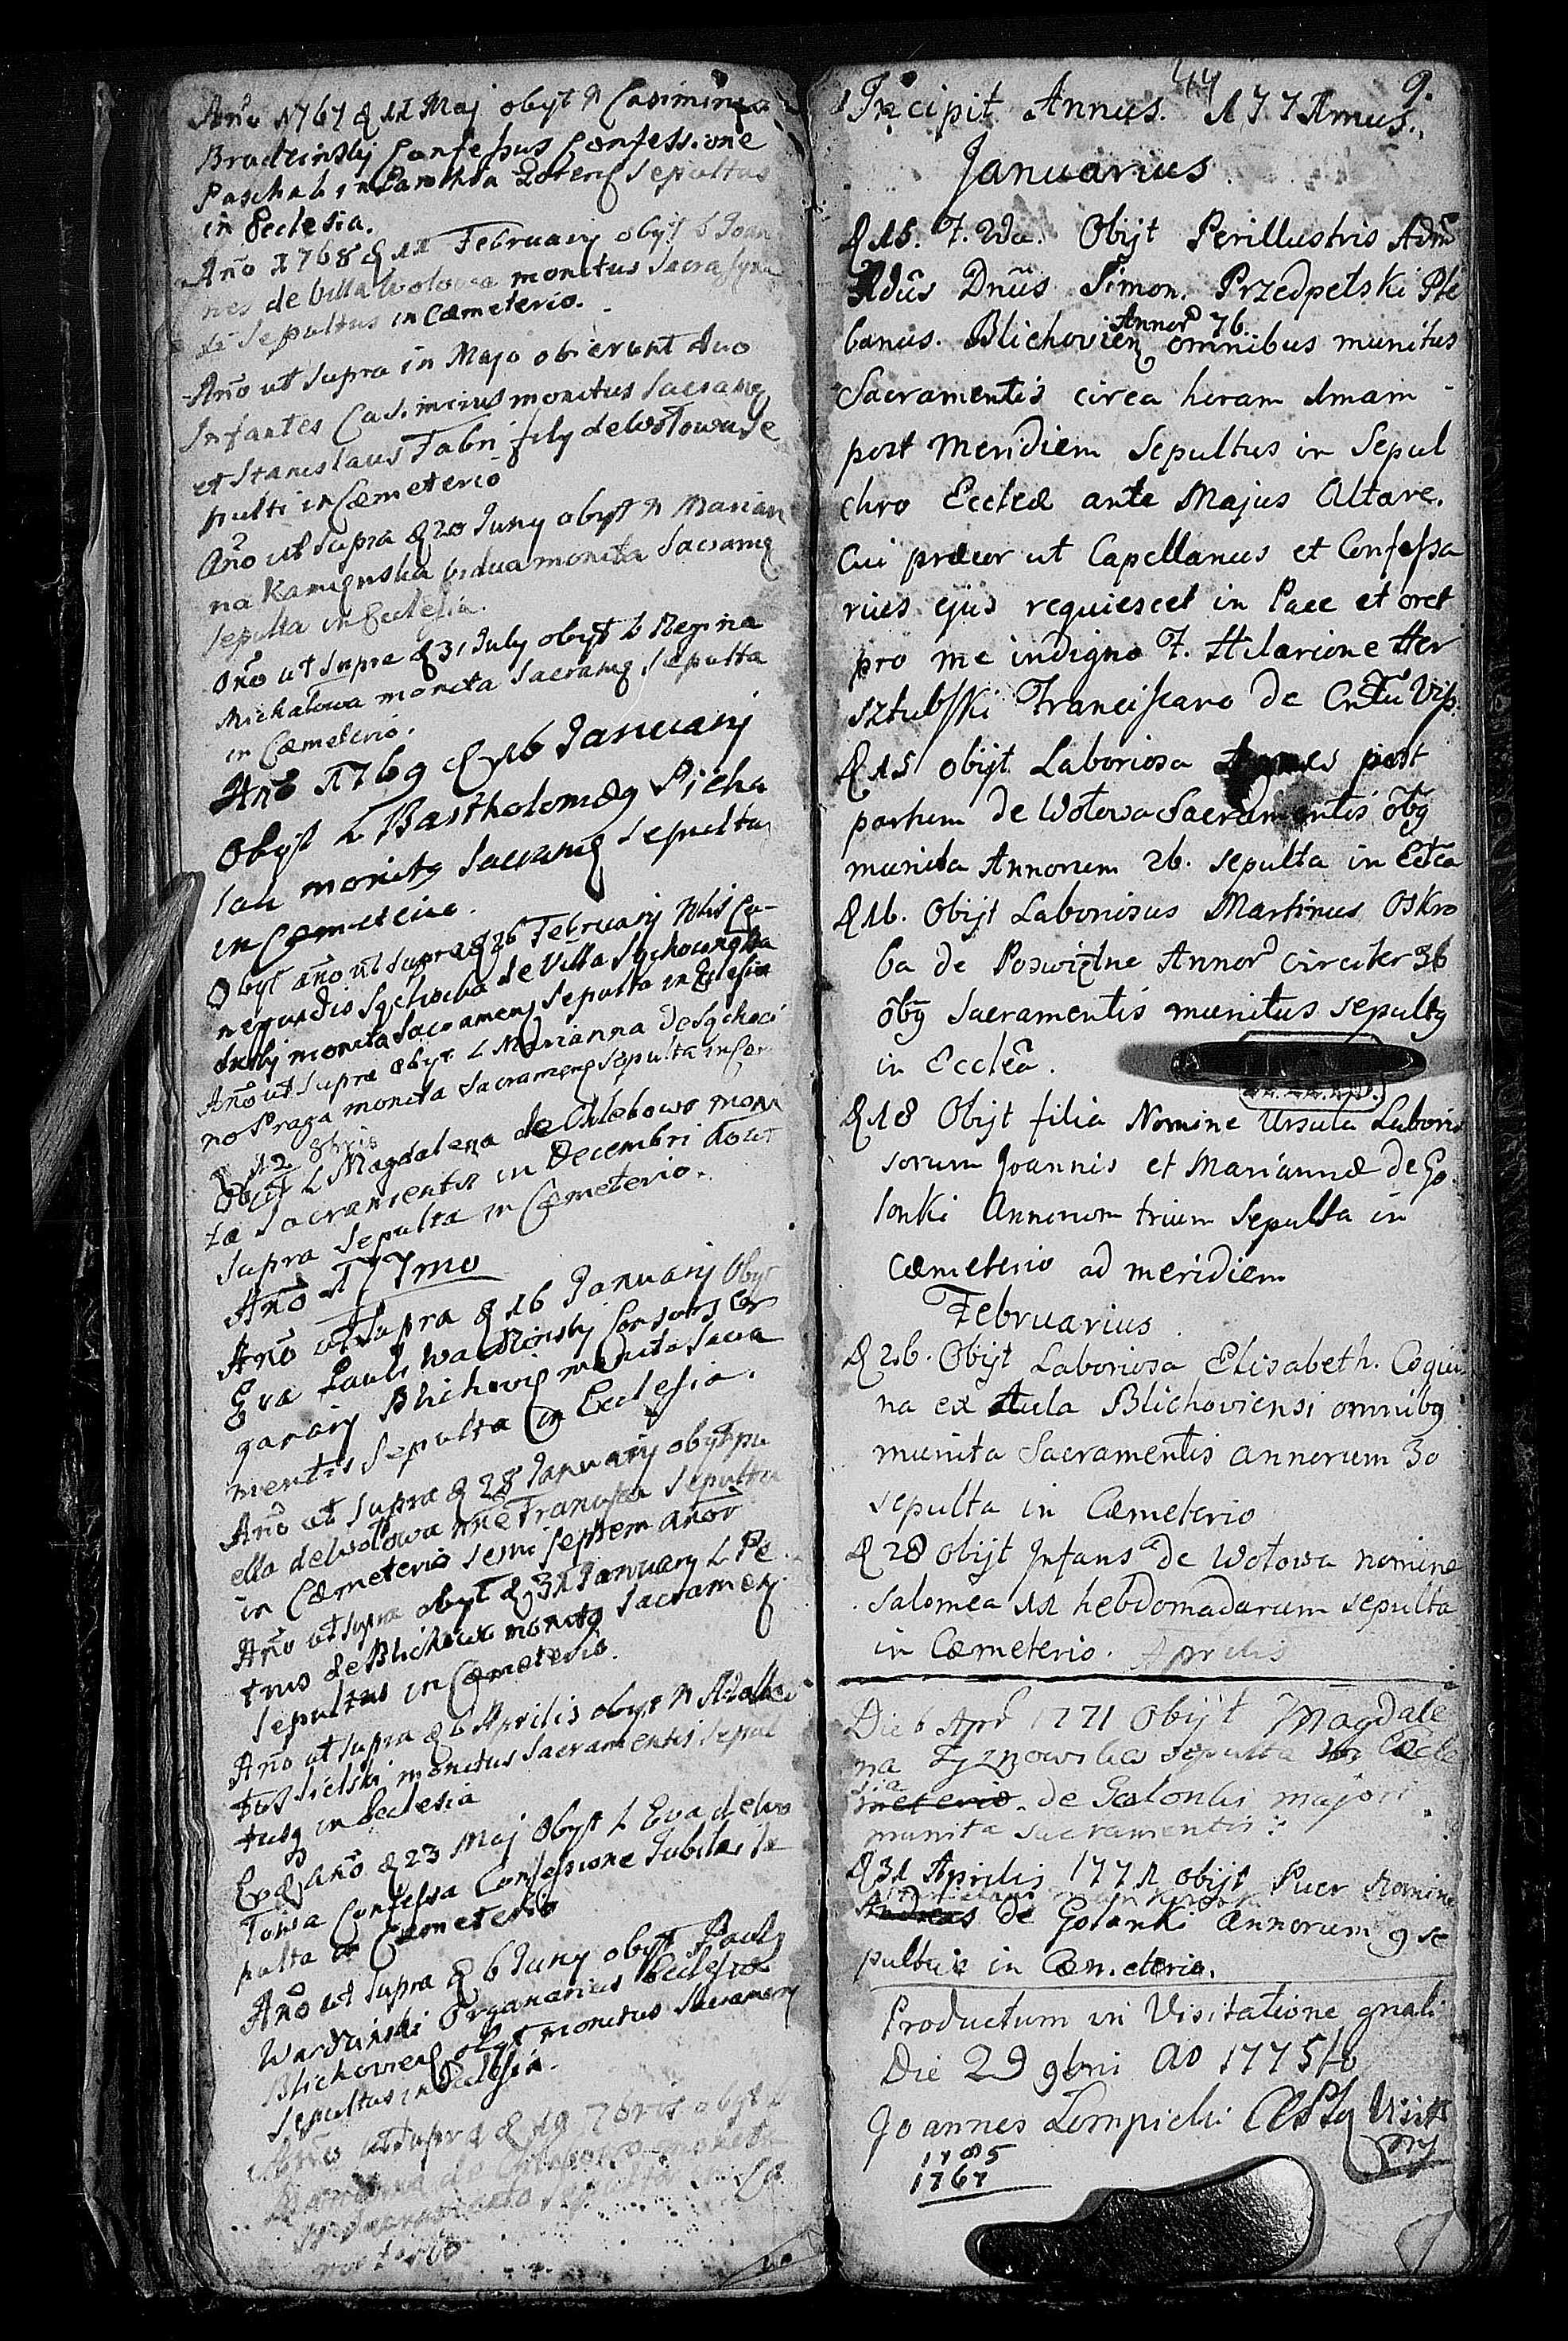 Año 1767 d 12 Maj obyt N Casimirus
Brudzinskj Confessus Confessione
Paschali in Parochia sepultus
in Ecclesia.
Año 1768 d 12 February obyt L Joan
nes de Villa Wolowa monitus Sacra
sepultus in Cæmeterio.
Año ut supra in Majo obierunt duo
Infantes Casimirus monitus Sacram
et Stanislaus Fabri fily de Wolowa se
pulti in Cæmeterio
Año ut supra d 20 Juny obyt N Marian
na vidua monita Sacram
sepulta in Ecclesia.
Año ut supra d 31 July obyt L Regina
Michałowa monita Sacram sepulta
in Cæmeterio.
Año 1769 d 16 Januarij
Obyt L Bartholomeg Picha
monitg Sacram sepultus
in Cæmeterio.
Obyt año ut supra d 26 February
de Villa
monita Sacramen sepulta in Eclesia
Año ut supra obyt L Marianna de
no Praga monita Sacramen sepulta in Cæ
d 12 8bris
Obyt L Magdalena de Chlebowo moni
ta Sacramentis in Decembri Ao ut
supra sepulta in Cæmeterio.
Año 177mo
Año ut supra d 16 January Obyt
Eva Pauli Wardzinskj Consors or
ganarij Blichovie monita Sacra
mentis sepulta in Ecclesia.
Año ut supra d 28 January obyt pu
ella de Wolowa nne Francisca sepulta
in Cæmeterio semi septem anor
Año ut supra obyt d 31 January L Pe
trus de Blichowo monitg Sacramen
sepultus in Cæmeterio.
Año ut supra d 6 Aprilis obyt N Adalber
tus monitus Sacramentis sepul
tusg in Ecclesia
Eod Año d 23 Maj Obyt L Eva de Wo
lowa Confessa Confessione Jubilæi se
pulta in Cæmeterio
Año ut supra d 6 Juny obyt Paulg
Wardzinski Organarius Ecclesiæ
Blichovien obyt monitus Sacramen
sepultus in Ecclesia.
Año ut supra d 19 7bris obyt L
de monita
sepulta in Cæ
meterio
44 9.
Incipit Annus. 177Amus.
Januarius.
d 16. F. Obijt Perillustris Adm
Rdus Dnus Simon. Przedpelski Ple
Annor 76.
banus. Blichovien omnibus munitus
Sacramentis circa horam 1mam
post meridiem sepultus in Sepul
chro Eccleæ ante Majus Altare.
Cui precor ut Capellanus et Confessa
rius ejus requiescet in Pace et oret
pro me indigno F. Hilarione Her
sztubski Franciscano de Cntu Vis.
d 15 obijt Laboriosa post
partum de Wolowa Sacramentis obg
munita Annorum 26. sepulta in Ecla
d 16. Obijt Laboriosus Martinus Oskro
ba de Poswiętne Annor circiter 36
obg Sacramentis munitus sepultg
in Ecclea.
d 18 Obijt filia Nomine Ursula Laborio
sorum Joannis et Mariannæ de Go
lonki Annorum trium sepulta in
cæmeterio ad meridiem
Februarius
d 26. Obijt Laboriosa Elisabeth. Coqui
na ex Aula Blichoviensi omnibg
munita Sacramentis annorum 30
sepulta in Cæmeterio
d 28 obijt Infans de Wolowa nomine
Salomea 12 hebdomadarum sepulta
in Cæmeterio. Aprilis
Die 6 Apr 1771 Obijt Magdale
na sepulta in Eccle
sia
meterio. de Golonki majori
munita sacramentis:
d 31 Aprilis 1771 obijt Puer Nomine
Andreas de Golanki Annorum 9 se
pultus in Cæmeterio.
Productum in Visitatione gnali
Die 29 9bris Ao 1775to
Joannes Lempicki Visitt
mp
1785
1767